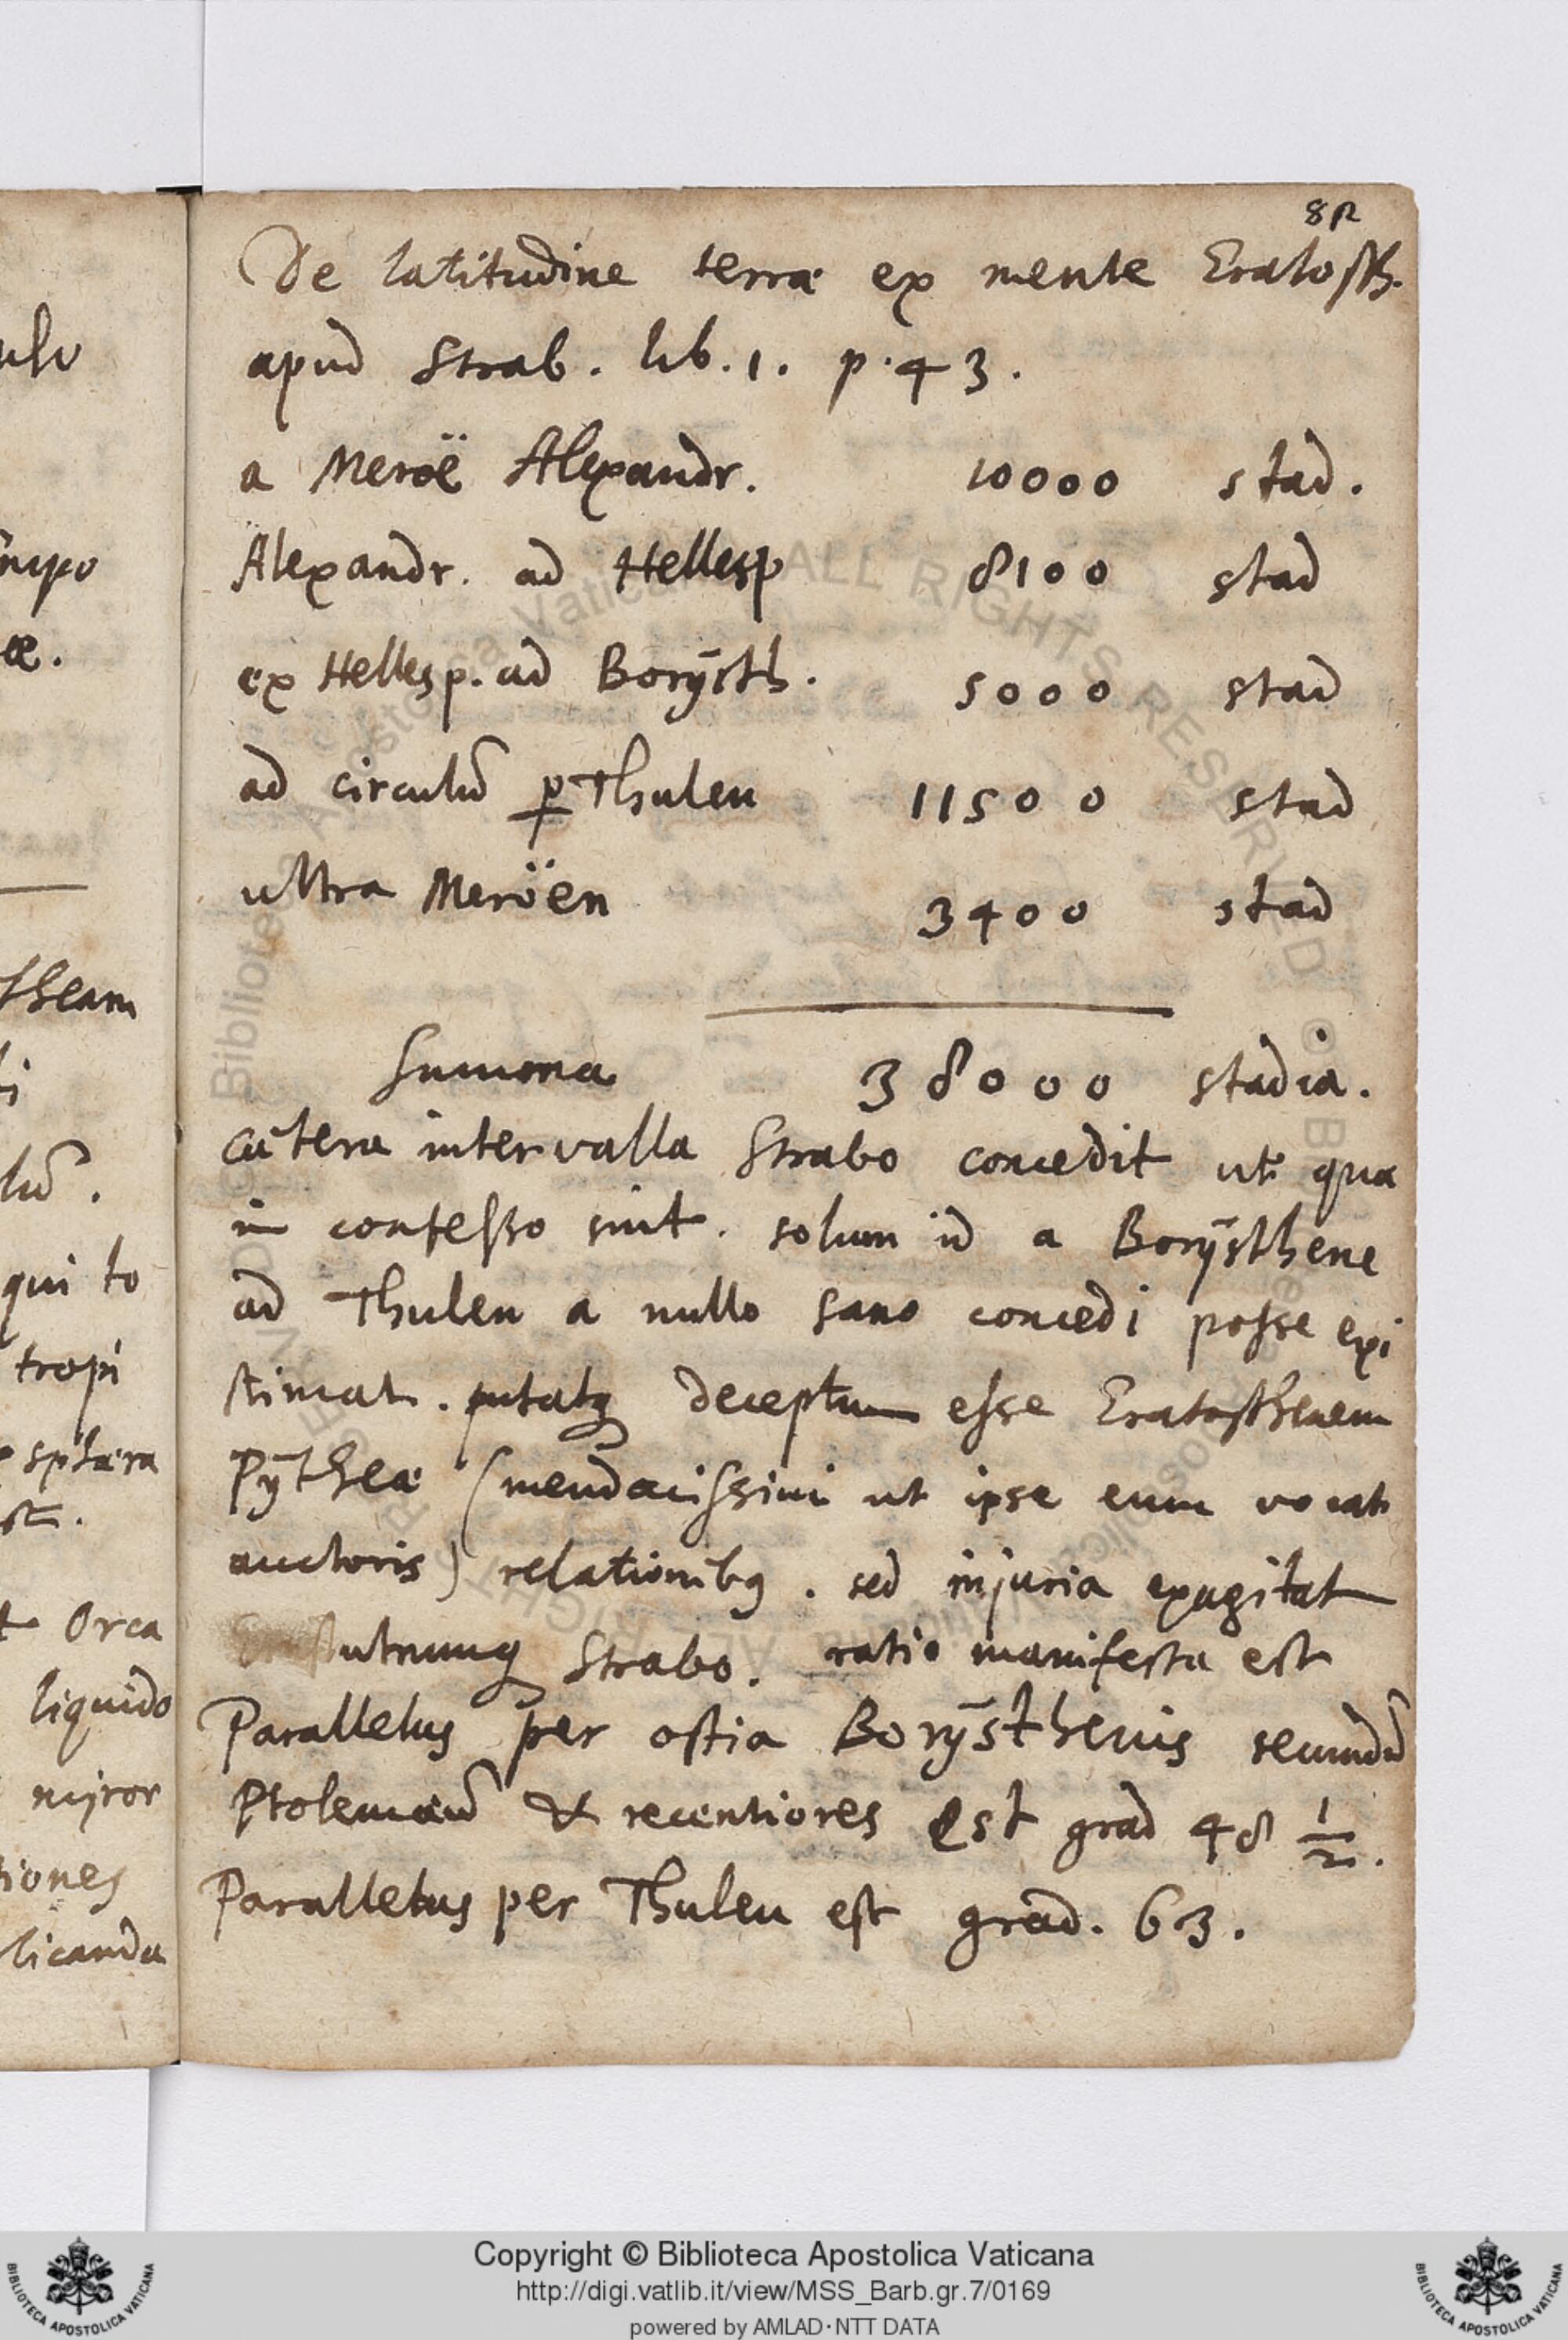 82
De latitudine terræ ex mente Eratosth.
apud Strab. lib. 1. p. 43.
a Meroë Alexandr. 10000 stad.
Alexandr. ad Hellesp 8100 stad
ex Hellesp. ad Borÿsth. 5000 stad
ad circulū ꝑ Thulen 11500 stad
ultra Meröen 3400 stad
Summa 38000 stadia.
cætera intervalla Strabo concedit ut quæ
in confesso sint. solum id a Borÿsthene
ad Thulen a nullo sano concedi posse exi
stimat. putatq deceptum esse Eratosthenem
Pÿtheæ (mendacissimi ut ipse eum vocat
auctoris) relationibq. sed injuria exagitat
utrumq Strabo. ratio manifesta est
Parallelus per ostia Borÿsthenis secundū
Ptolemæū & recentiores est grad 48 1/2.
Parallelus per Thulen est grad. 63.
ulo
æ.
theam
li
lū.
qui to
tropi
sphæra
Orca
liquido
miror
tiones
licanda
Biblioteca Apostolica Vaticana ALL RIGHTS RESERVED ©
Copyright © Biblioteca Apostolica Vaticana
http://digi.vatlib.it/view/MSS_Barb.gr.7/0169
powered by AMLAD·NTT DATA
BIBLIOTECA APOSTOLICA VATICANA
BIBLIOTECA APOSTOLICA VATICANA